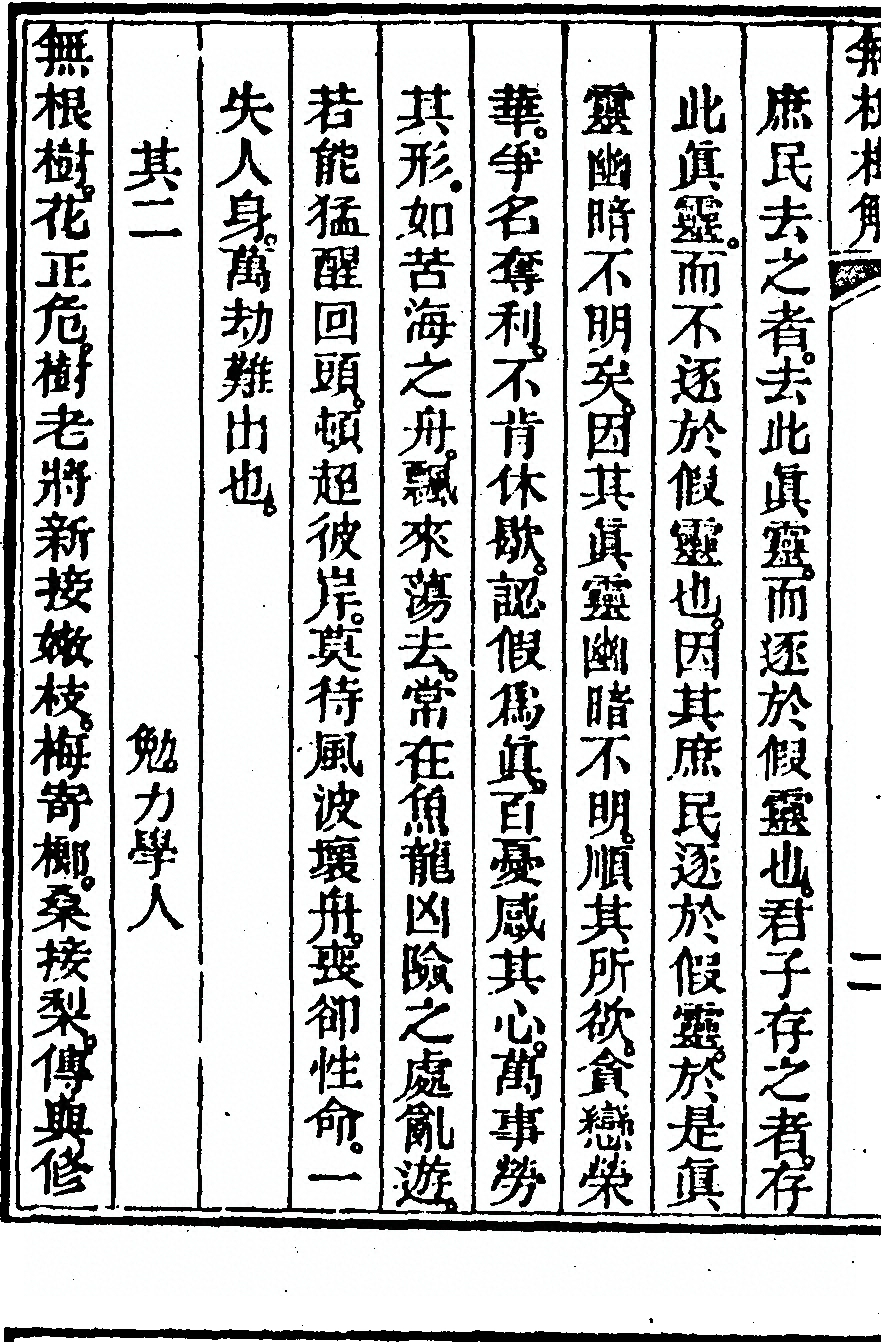 無根樹解
二
庶民去之者。去此眞靈。而逐於假靈也。君子存之者。存
此眞靈。而不逐於假靈也。因其庶民逐於假靈。於是眞
靈幽暗不明矣。因其眞靈幽暗不明。順其所欲。貪戀榮
華。爭名奪利。不肯休歇。認假爲眞。百憂感其心。萬事勞
其形。如苦海之舟。飄來蕩去。常在魚龍凶險之處亂遊。
若能猛醒回頭。頓超彼岸。莫待風波壞舟。喪卻性命。一
失人身。萬劫難出也。
其二 勉力學人
無根樹。花正危。樹老將新接嫩枝。梅寄榔。桑接梨。傳與修